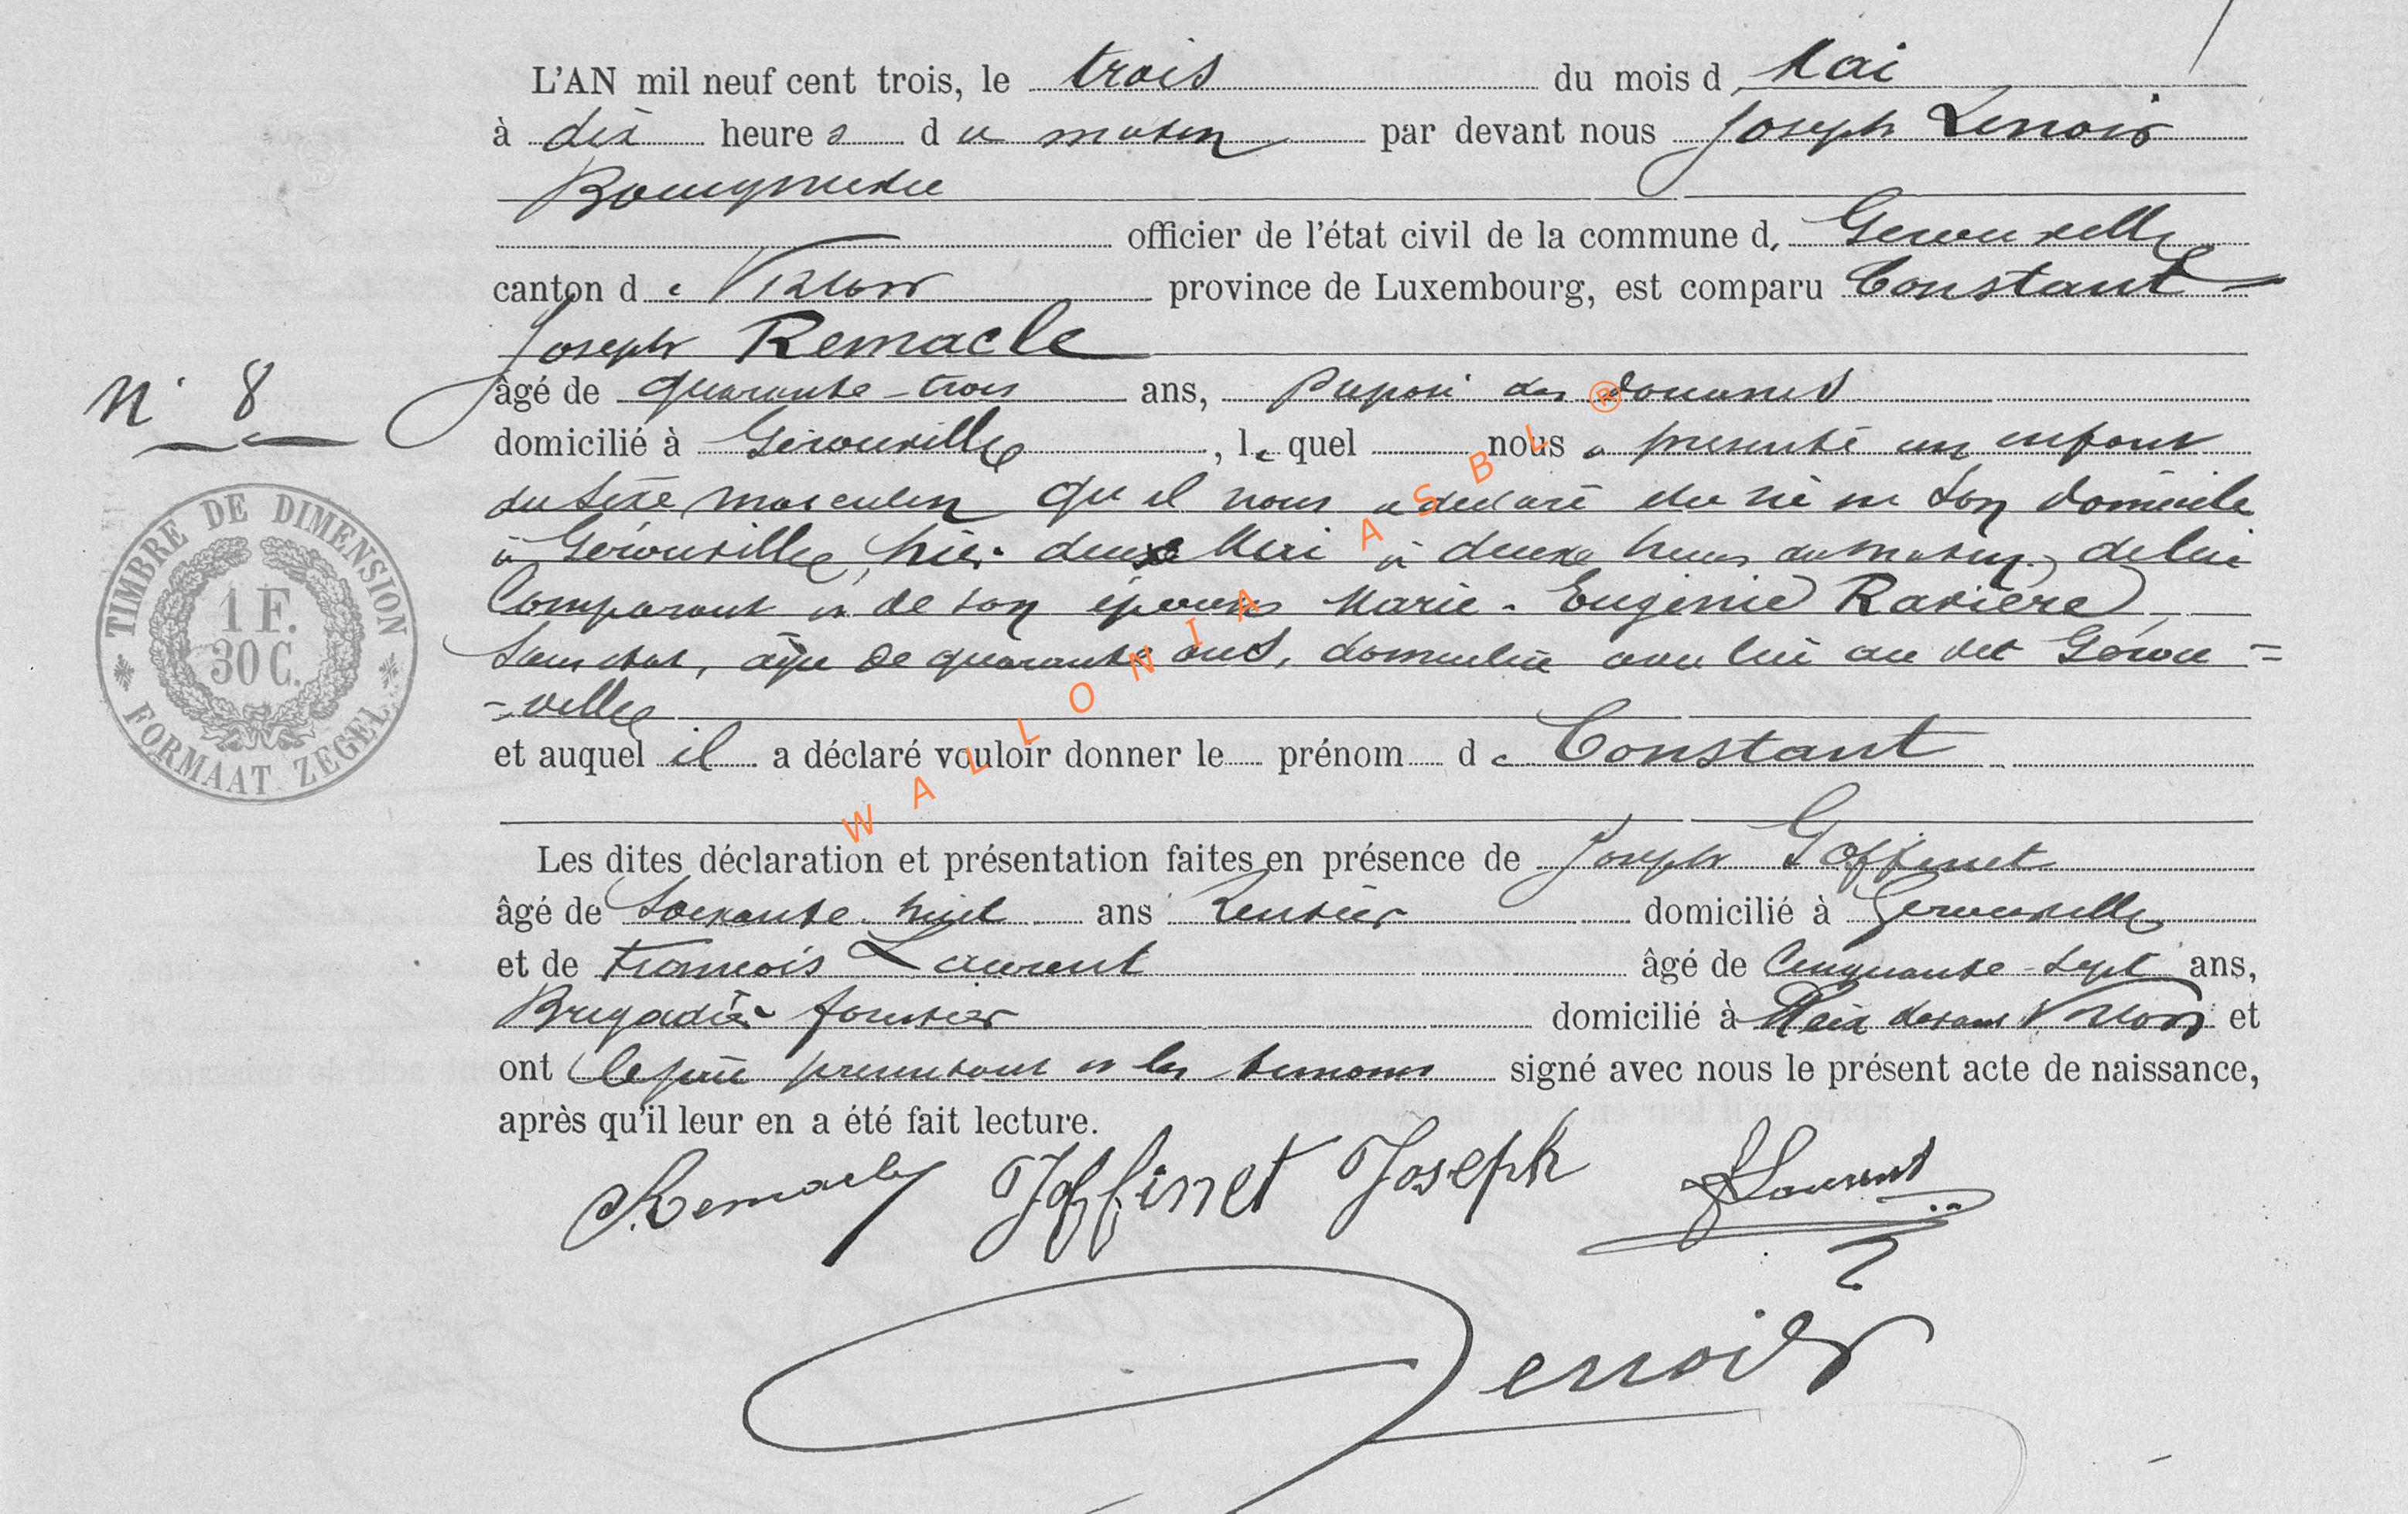 L'AN mil neuf cent trois, le trois du mois d Mai
à dix heures du matin par devant nous Joseph Lenoir
Bourgmestre
officier de l'état civil de la commune d, Gérouville
canton de Virton province de Luxembourg, est comparu Constant
Joseph Remacle
âgé de quarante-trois ans, préposé des douanes
N° 8
domicilié à Gérouville, lequel nous a présenté un enfant
du sexe masculin qu'il nous a déclaré être né en son domicile
à Gérouville, hier deux Mai à deux heures du matin, de lui
Comparant et de son épouse Marie-Eugénie Ravière,
Sans état, âgée de quarante ans, domiciliée avec lui au dit Gérou=
=ville
et auquel il a déclaré vouloir donner le prénom de Constant
Les dites déclaration et présentation faites en présence de Joseph Goffinet
âgé de Soixante-huit ans Rentier domicilié à Gérouville
et de François Laurent âgé de Cinquante-sept ans,
Brigadier forestier domicilié à Meix devant Virton et
ont le père présentant et les témoins signé avec nous le présent acte de naissance,
après qu'il leur en a été fait lecture.
Remacle Goffinet Joseph F Laurent
Lenoir
TIMBRE DE DIMENSION
1 F.
30 C.
FORMAAT ZEGEL
WALLONIA ASBL ®